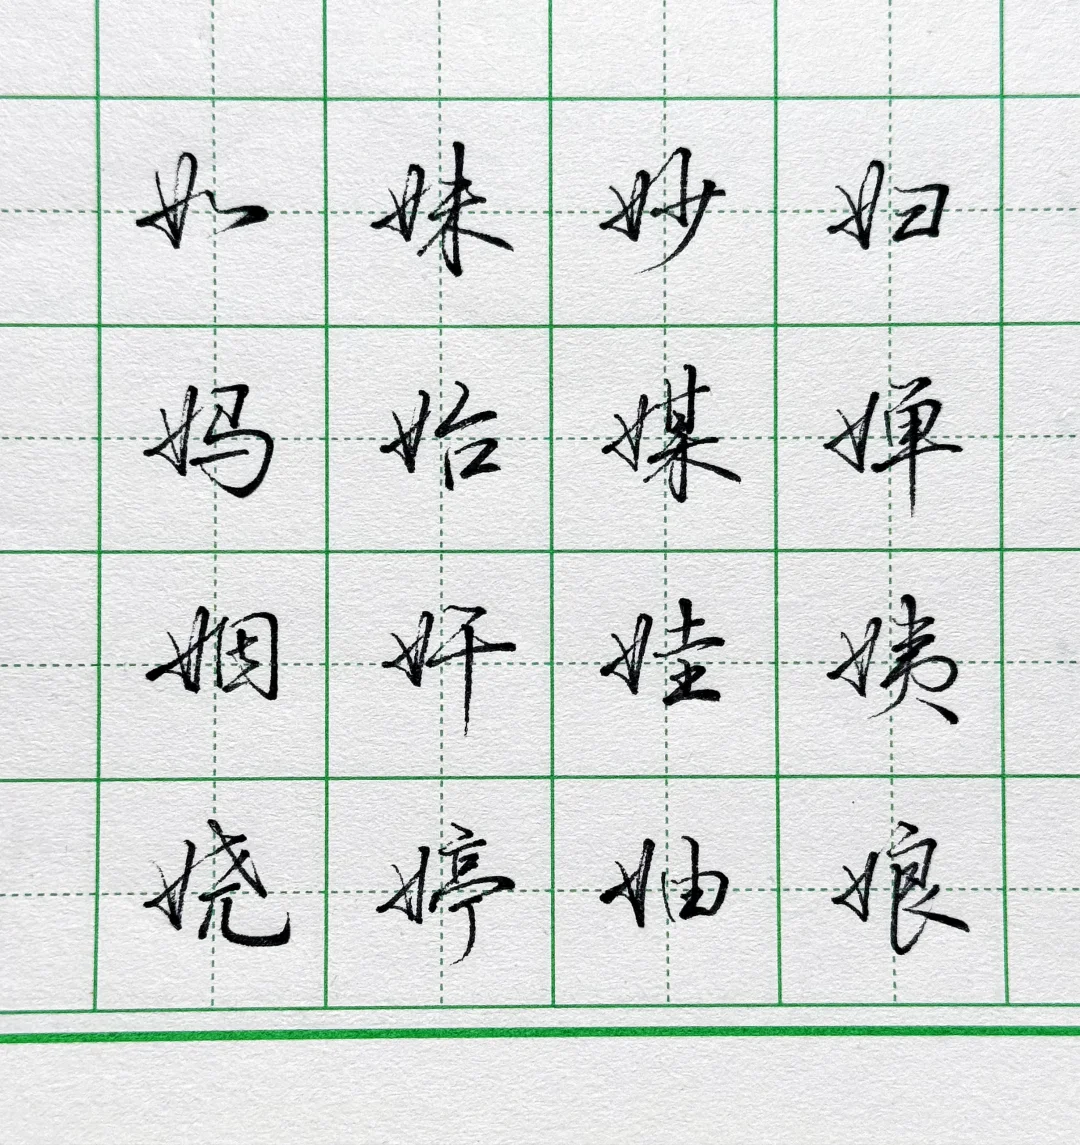 如妹妙妇
妈始媒婵
姻奸娃姨
娆婷妯娘